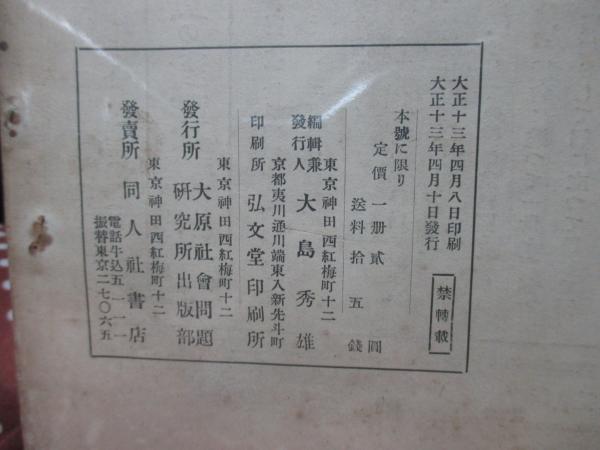 大正十三年四月八日印刷
大正十三年四月十日發行
禁轉載
本號に限り
定價一册貳圓
送料拾五錢
東京神田西紅梅町十二
編輯兼發行人 大島秀雄
京都夷川通川端東入新先斗町
印刷所 弘文堂印刷所
東京神田西紅梅町十二
發行所 大原社會問題研究所出版部
東京神田西紅梅町十二
發賣所 同人社書店
電話牛込五一一一
振替東京二七〇六五